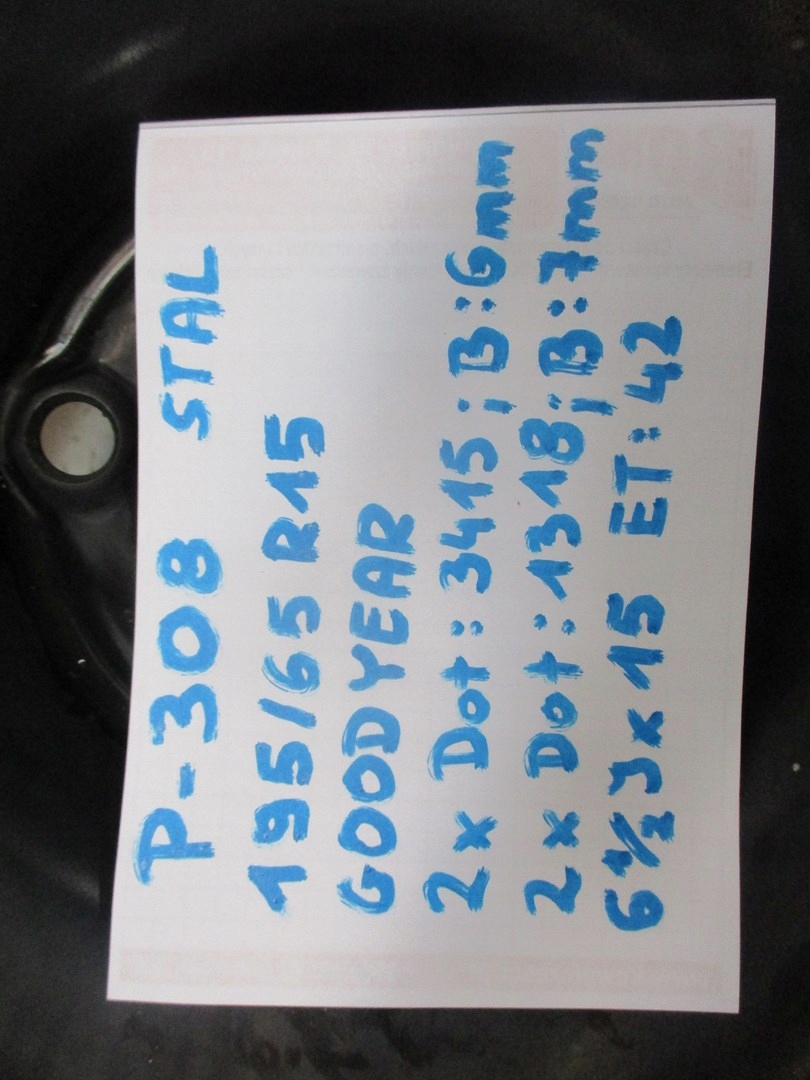 P-308 STAL
195/65 R15
GOODYEAR
2x Dot: 3415 ; B:6mm
2x Dot: 1318 ; B:7mm
6½Jx15 ET:42